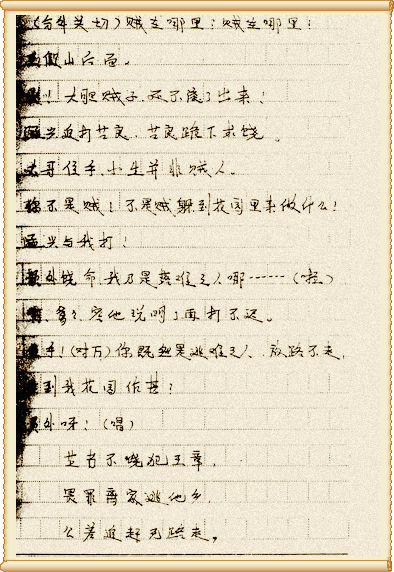 (台外关切)贼在哪里?贼在哪里?
假山后面。
!大胆贼子,还不滚了出来!
兴追打苦良,苦良跪下求饶。
大哥住手,小生并非贼人。
你不是贼!不是贼躲到花园里来做什么!
兴与我打!
员外饶命,我乃是落难之人哪……(哭)
容他说明了再打不迟。
住手!(对万)你既然是逃难之人,放路不走,
到我花园作甚?
员外呀!(唱)
艹不饶犯王章,
畏罪离家逃他乡。
公差追赶无路走,